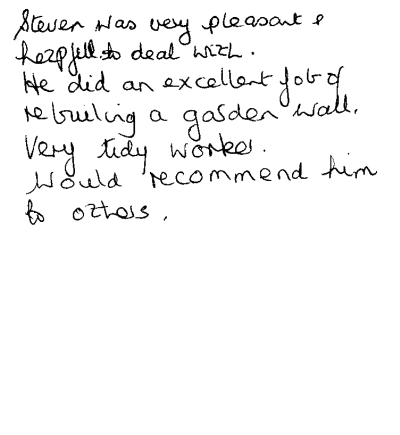 Steven was very pleasant &
helpful to deal with.
He did an excellent job of
rebuilding a garden wall.
Very tidy worker.
Would recommend him
to others.